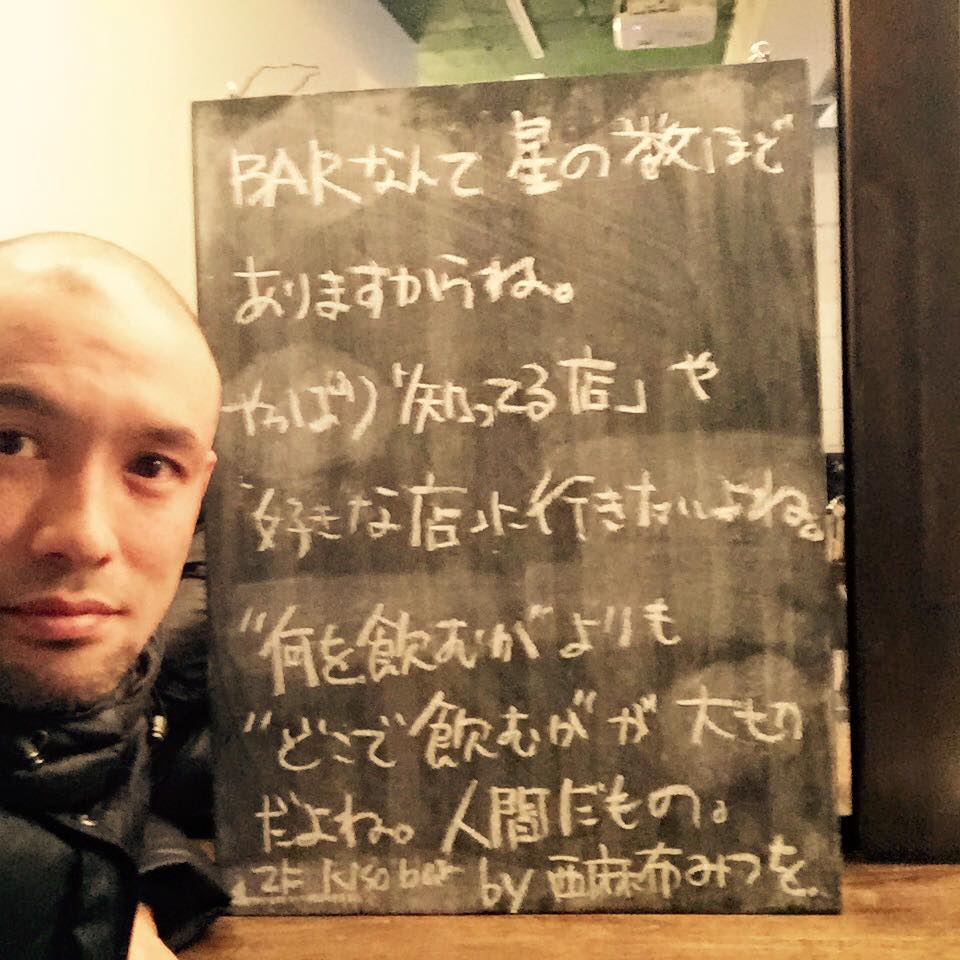 BARなんて星の数ほど
ありますからね。
やっぱり「知ってる店」や
「好きな店」に行きたいよね。
"何を飲むか"よりも
"どこで飲むか"が大切
だよね。人間だもの。
2F kiso bar by 西麻布みつを